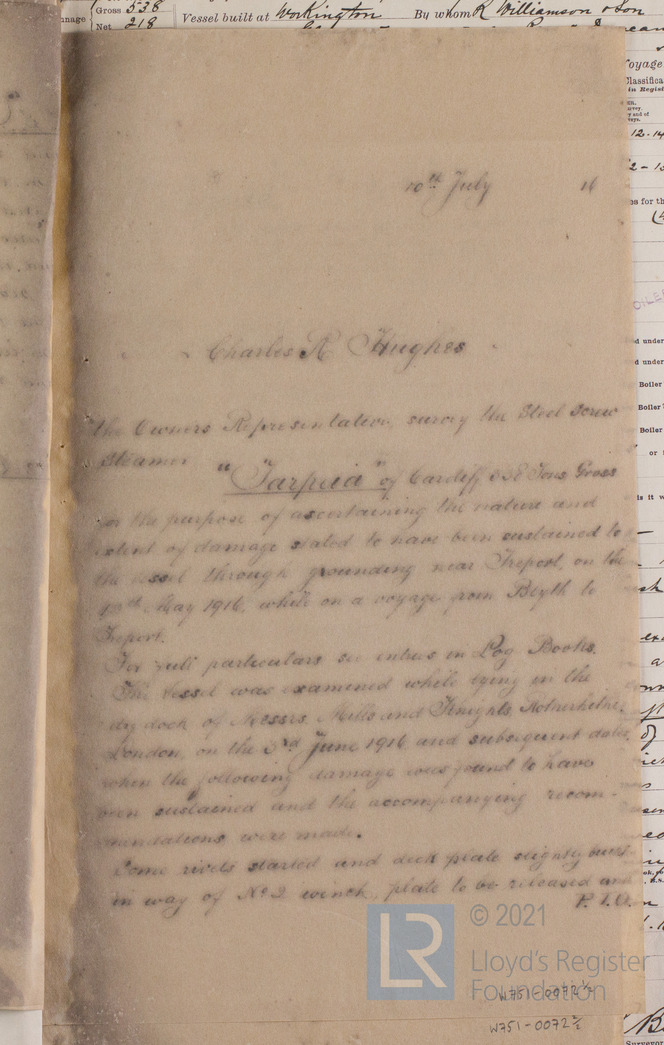 Gross 538
Net 218
nnage
Vessel built at Workington By whom R Williamson & Son
oyage
Classifica
in Regist
12.14
2-1
es for th
10th July 16
Charles R Hughes
the Owners Representative, survey the Steel Screw
Steamer "Tarpeia" of Cardiff 538 Tons Gross
for the purpose of ascertaining the nature and
extent of damage stated to have been sustained to
the vessel through grounding near Treport, on the
May 1916, while on a voyage from Blyth to
Treport.
For full particulars see entries in Log Books.
The vessel was examined while lying in the
dry dock of Messrs. Mills and Knights, Rotherhithe,
London, on the 3rd June 1916 and subsequent dates,
when the following damage was found to have
been sustained and the accompanying recom-
mendations were made.
Some rivets started and deck plate slightly
in way of No 2 winch, plate to be released and
P.T.O.
d under
d under
Boiler
Boiler
Boiler
or
is it w
LR © 2021
Lloyd's Register
Foundation
W751-0072 1/2
W751-0072 2/2
Surveyor